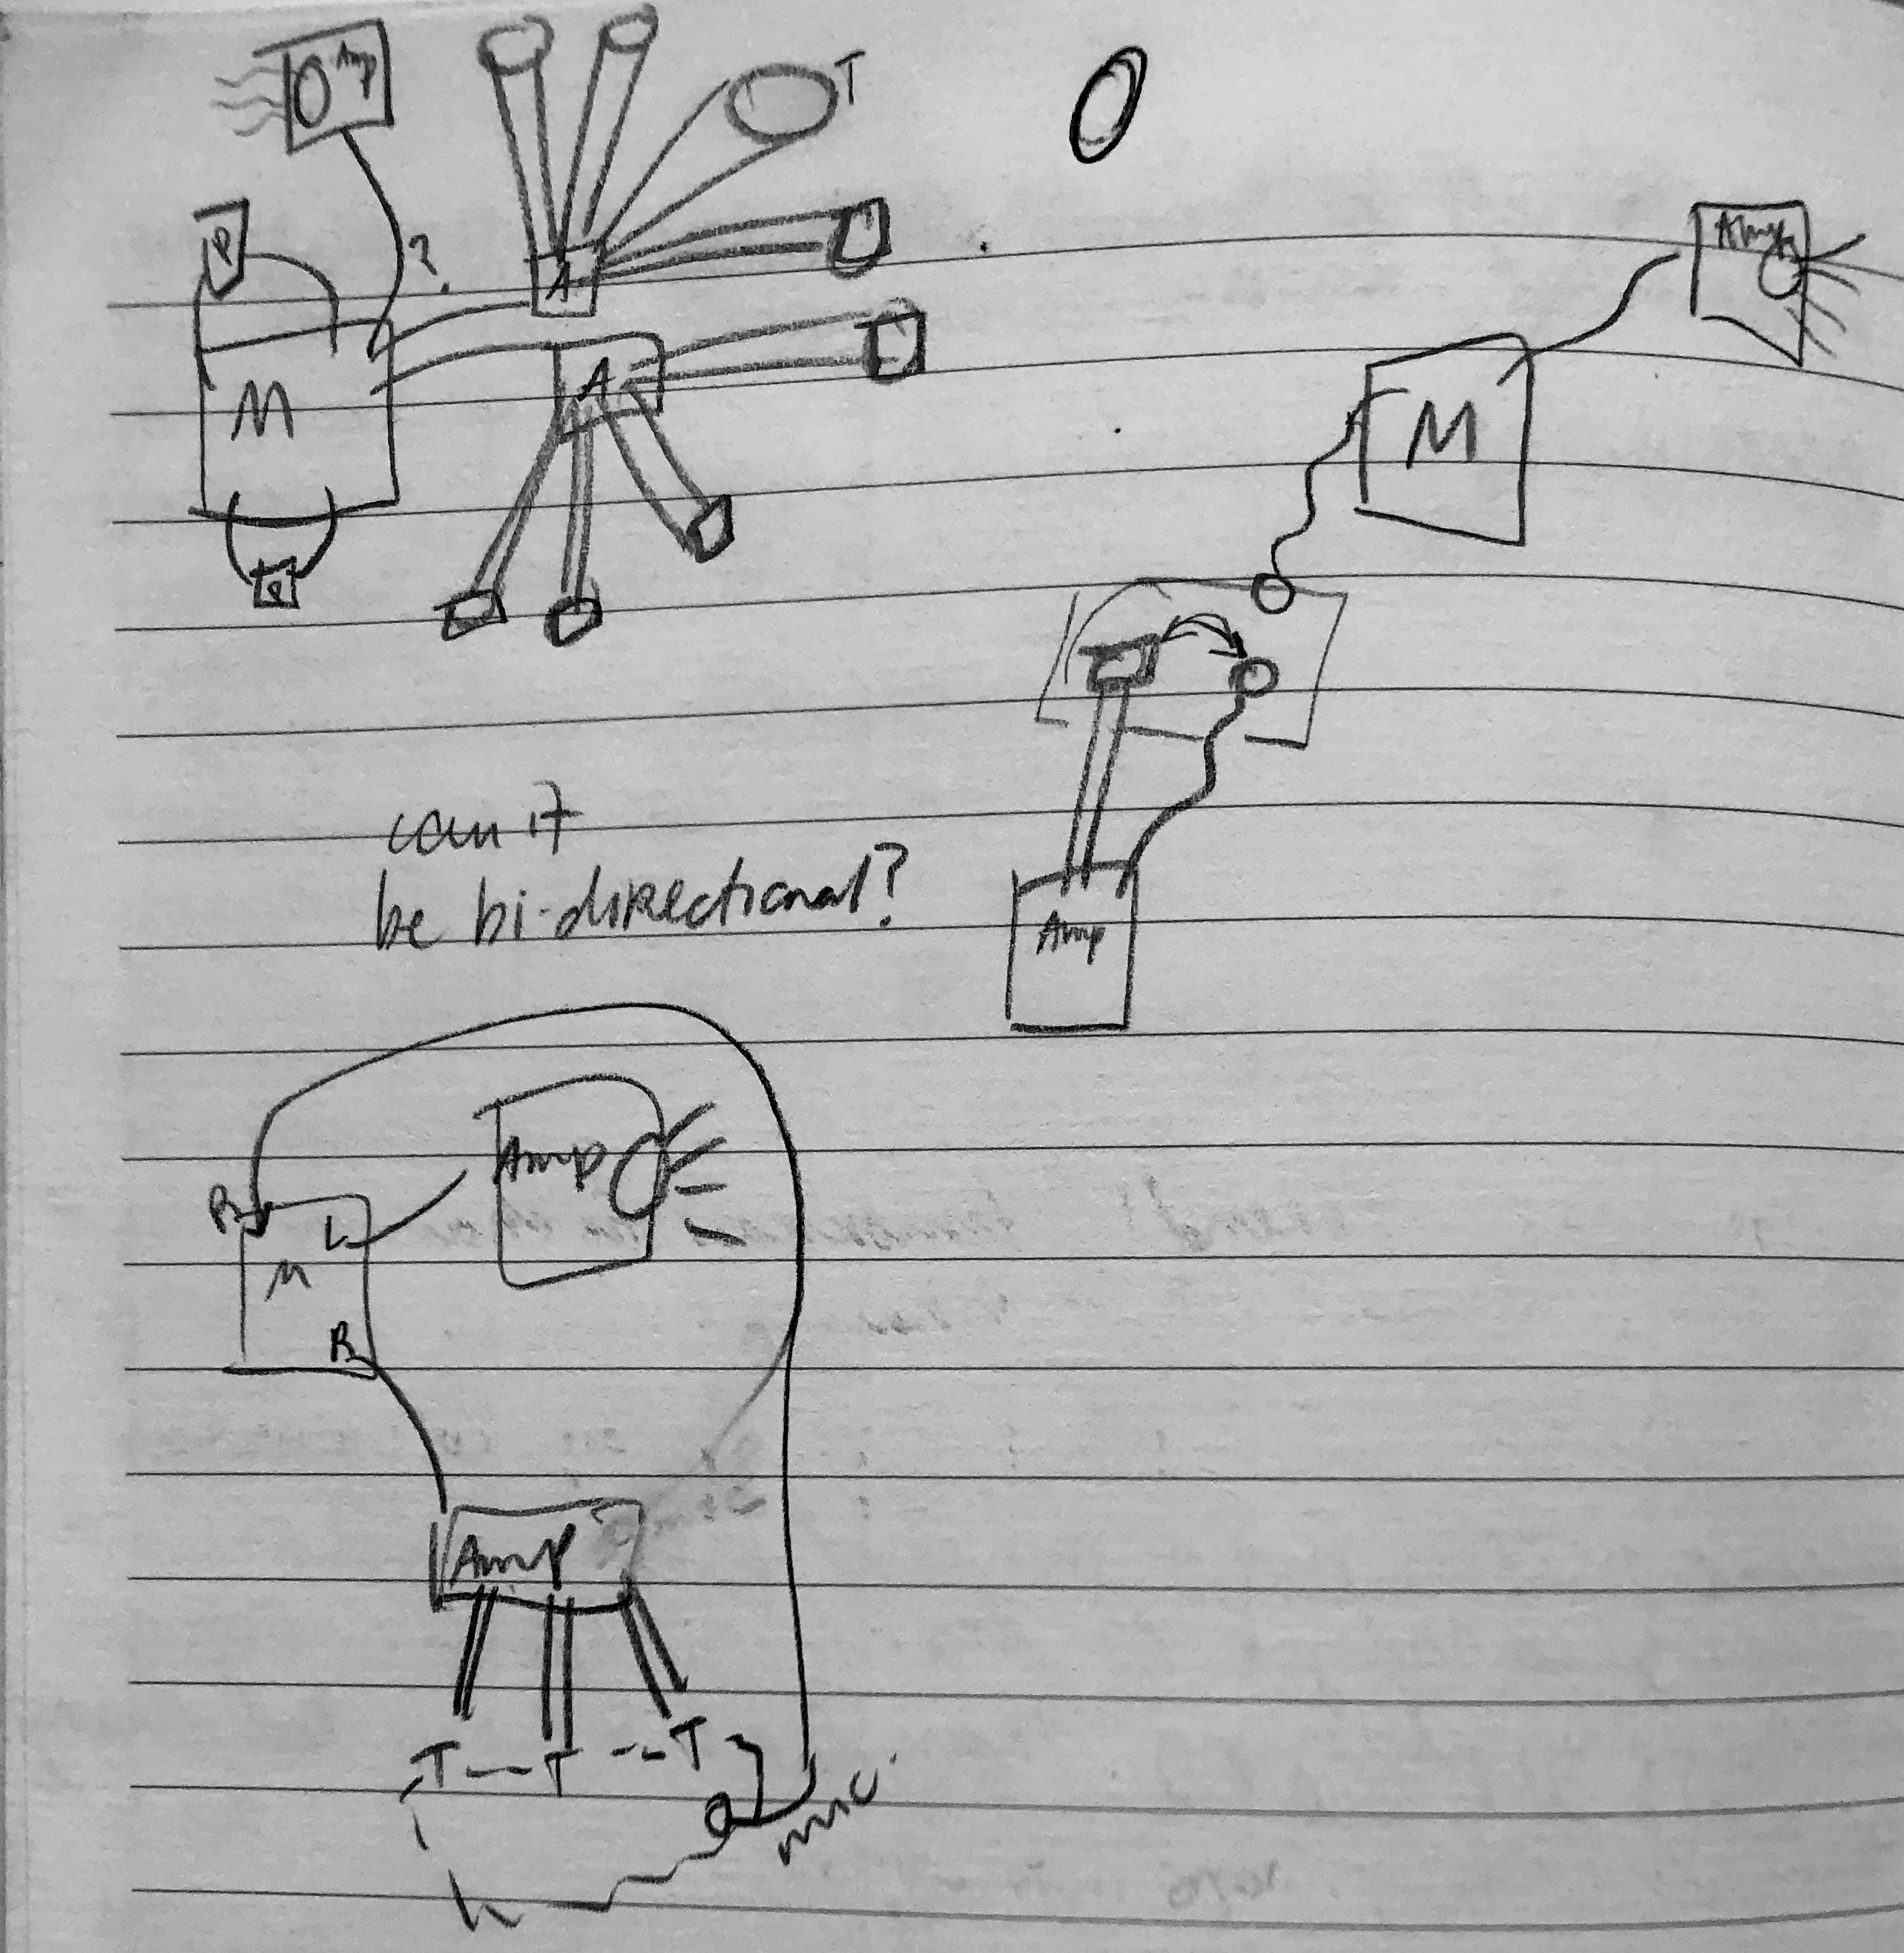 Amp
T
P
?
A
M
A
P
Amp
M
Amp
can it
be bi-directional?
Amp
R
L
M
R
Amp
T -- T -- T
mic